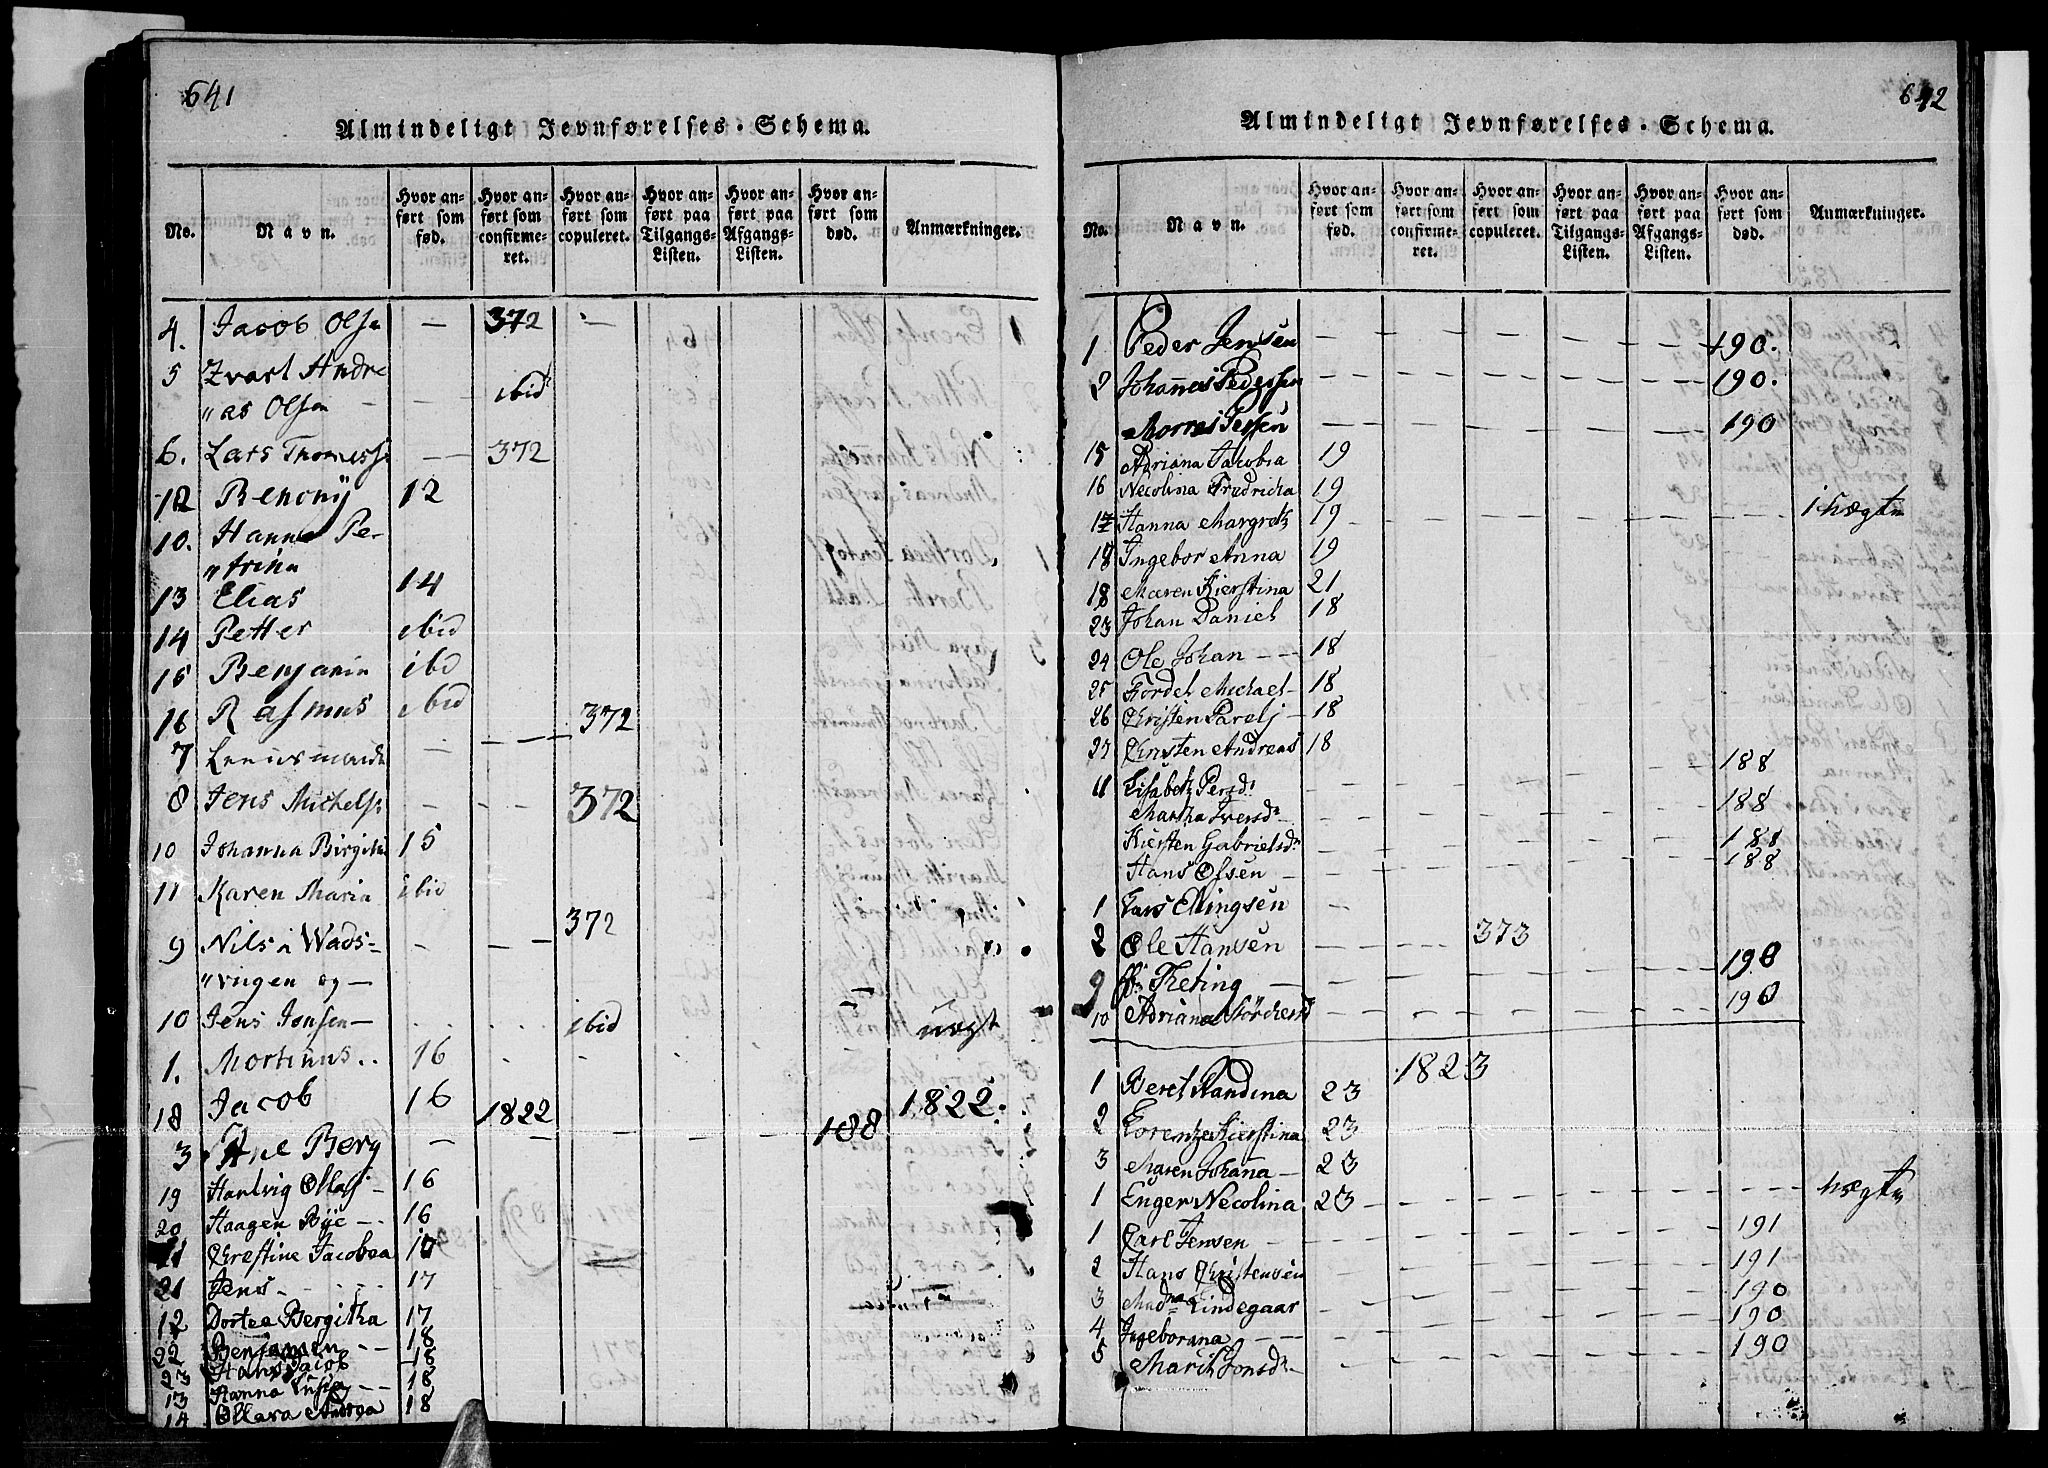 641
Almindeligt Jevnførelses-Schema.
No. Navn. Hvor anført som fød. Hvor anført som confirmeret. Hvor anført som copuleret. Hvor anført paa Tilgangs-Listen. Hvor anført paa Afgangs-Listen. Hvor anført som død. Anmærkninger.
4. Jacob Olsen — 372 —
5 Andre
"as Olsen — — ibid
6. Lars — 372
12 Benonij 12
10. Hanna Pe-
"trina
13 Elias 14
14 Petter ibid
15 Benjamin ibd
16 Rasmus ibid
7 — — — 372
8 Jens Michels: — — 372
10 Johanna Birgitha 15
11 Karen Maria ibid
9 Nils i Wads= — — 372
"vigen og —
10 Jens Jonsen — ibid
1. Mortinus .. 16
18 Jacob 16
1822 1822.
3 Berg — — — — — 188
19 Hartvig Ollaj — 16
20 Haagen Bye — 16
11 Christine Jacobea 17
21 Jens 17
12 Dortea Bergitha 17
22 Benjamin — 18
23 Hans Jacob 18
13 Hanna Lusia — 18
14 Ollava Andrea 18
642
Almindeligt Jevnførelses-Schema.
No. Navn. Hvor anført som fød. Hvor anført som confirmeret. Hvor anført som copuleret. Hvor anført paa Tilgangs-Listen. Hvor anført paa Afgangs-Listen. Hvor anført som død. Anmærkninger.
1 Peder Jensen — — — — — 190.
2 Johanes Pedersen — — — — — 190.
— — — — — 190
15 Adriana Jacobia 19
16 Necolina Fredricha 19
17 Hanna Margretz 19 — — — — —
18 Ingebor Anna 19
18 Maren Kierstina 21
23 Johan Daniel 18
24 Ole Johan — — 18
25 Tordel Michael — 18
26 Christen Parelj — 18
27 Christen Andreas 18
11 Elisabetz Persd: — — — — — 188
Martha Iversdr — — — — — 188
Kiersten Gabrielsdr — — — — — 188
Hans Olsen — — — — — 188
1 Lars Elingsen —
2 Ole Hansen — — 373
9 — — — — — 190
10 Adriana — — — — — 190
1823
1 Beret Randina 23
2 Lorentze Kierstina 23
3 Maren Johana — 23
1 Enger Necolina 23 — — — — —
1 Carl Jensen — — — — — 191
2 Hans Christensen — — — — — 191
3 Madme Lindegaar — — — — — 190
4 Ingeborana — — 190
5 Marit Jonsdr — — — — — 190